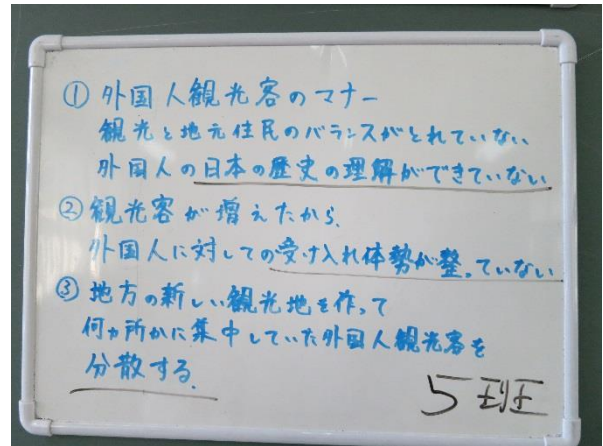 ① 外国人観光客のマナー
観光と地元住民のバランスがとれていない
外国人の日本の歴史の理解ができていない
② 観光客が増えたから、
外国人に対しての受け入れ体勢が整っていない
③ 地方の新しい観光地を作って
何ヵ所かに集中していた外国人観光客を
分散する。
5班